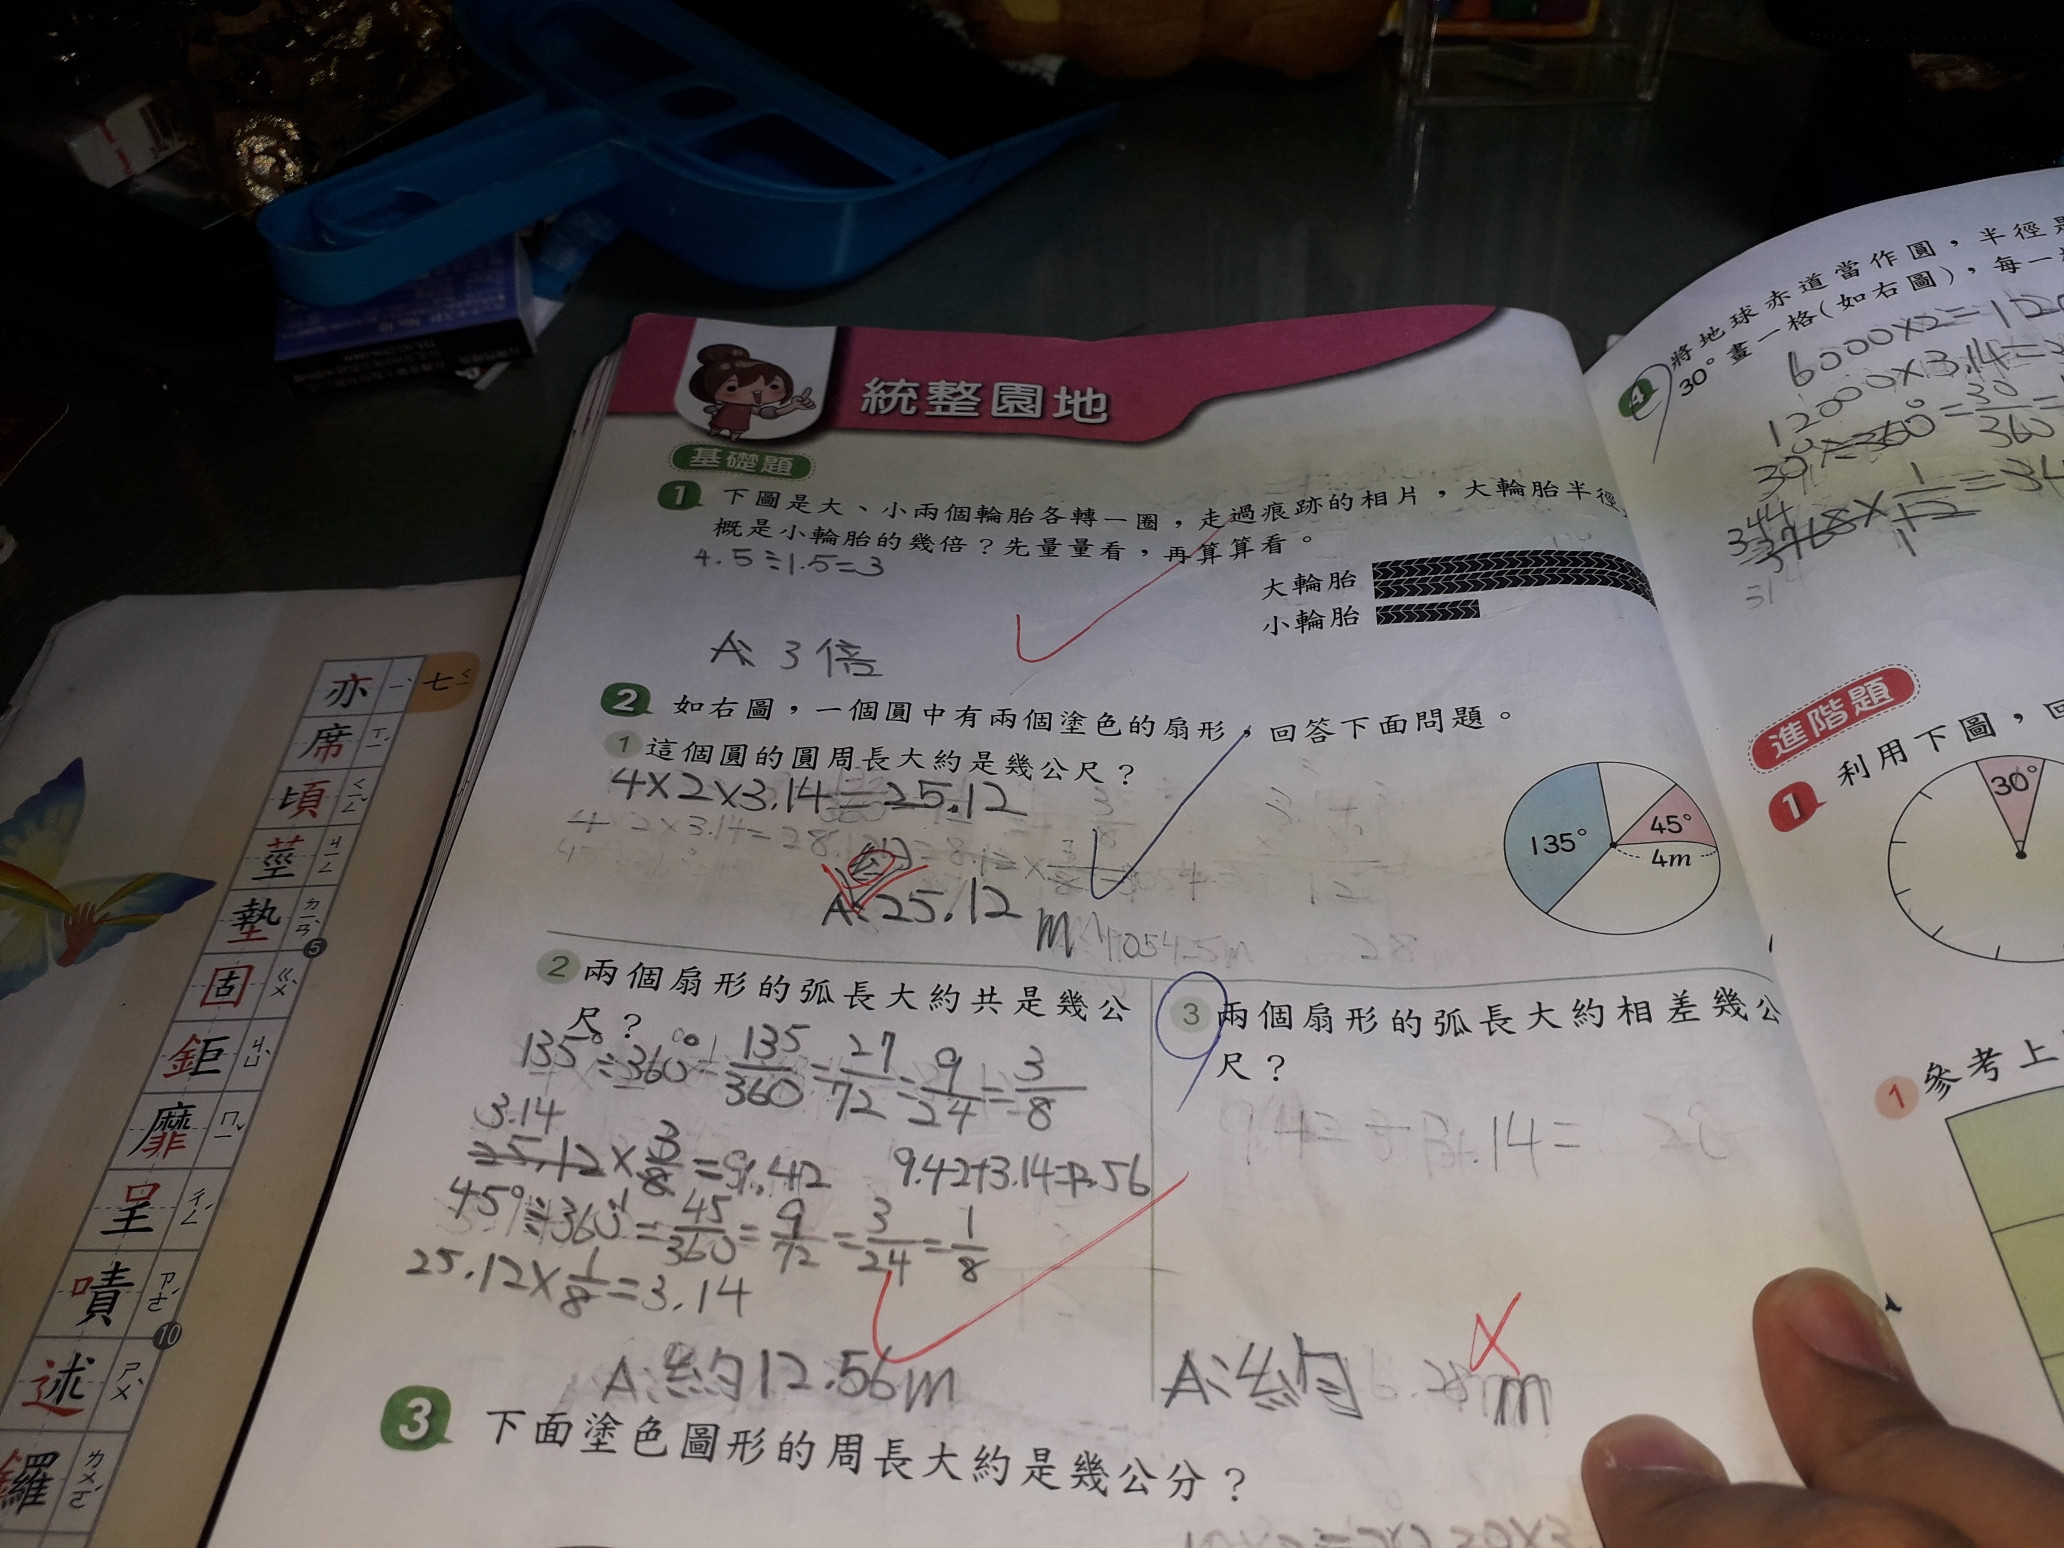 統整園地
基礎題
1 下圖是大、小兩個輪胎各轉一圈，走過痕跡的相片，大輪胎半徑
概是小輪胎的幾倍？先量量看，再算算看。
4.5÷1.5=3
大輪胎
小輪胎
A: 3倍
2 如右圖，一個圓中有兩個塗色的扇形，回答下面問題。
1 這個圓的圓周長大約是幾公尺？
4×2×3.14=25.12
約
A: 25.12 m
135°
45°
4m
2 兩個扇形的弧長大約共是幾公
尺？
135°÷360°=135/360=27/72=9/24=3/8
3.14
25.12×3/8=9.42
9.42+3.14=12.56
45°÷360°=45/360=9/72=3/24=1/8
25.12×1/8=3.14
A:約12.56m
3 兩個扇形的弧長大約相差幾公
尺？
A:約6.28m
3 下面塗色圖形的周長大約是幾公分？
4 將地球赤道當作圓，半徑是
30°畫一格(如右圖)，每一
6000×2=120
12000×3.14=3
30°÷360°=30/360=
進階題
1 利用下圖，回
30°
1 參考上
七 ㄑㄧ
亦 ㄧˋ
席 ㄒㄧˊ
頃 ㄑㄧㄥˇ
莖 ㄐㄧㄥ
墊 ㄉㄧㄢˋ
5
固 ㄍㄨˋ
鉅 ㄐㄩˋ
靡 ㄇㄧˇ
呈 ㄔㄥˊ
嘖 ㄗㄜˊ
10
述 ㄕㄨˋ
鑼 ㄌㄨㄛˊ